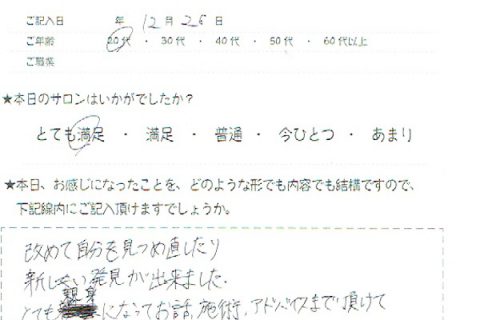 ご記入日 年 12月 26日
ご年齢 20代 ・ 30代 ・ 40代 ・ 50代 ・ 60代以上
ご職業
★本日のサロンはいかがでしたか?
とても満足 ・ 満足 ・ 普通 ・ 今ひとつ ・ あまり
★本日、お感じになったことを、どのような形でも内容でも結構ですので、
下記線内にご記入頂けますでしょうか。
改めて自分を見つめ直したり
新しい発見が出来ました。
とても親身になってお話、施術、アドバイスまで頂けて